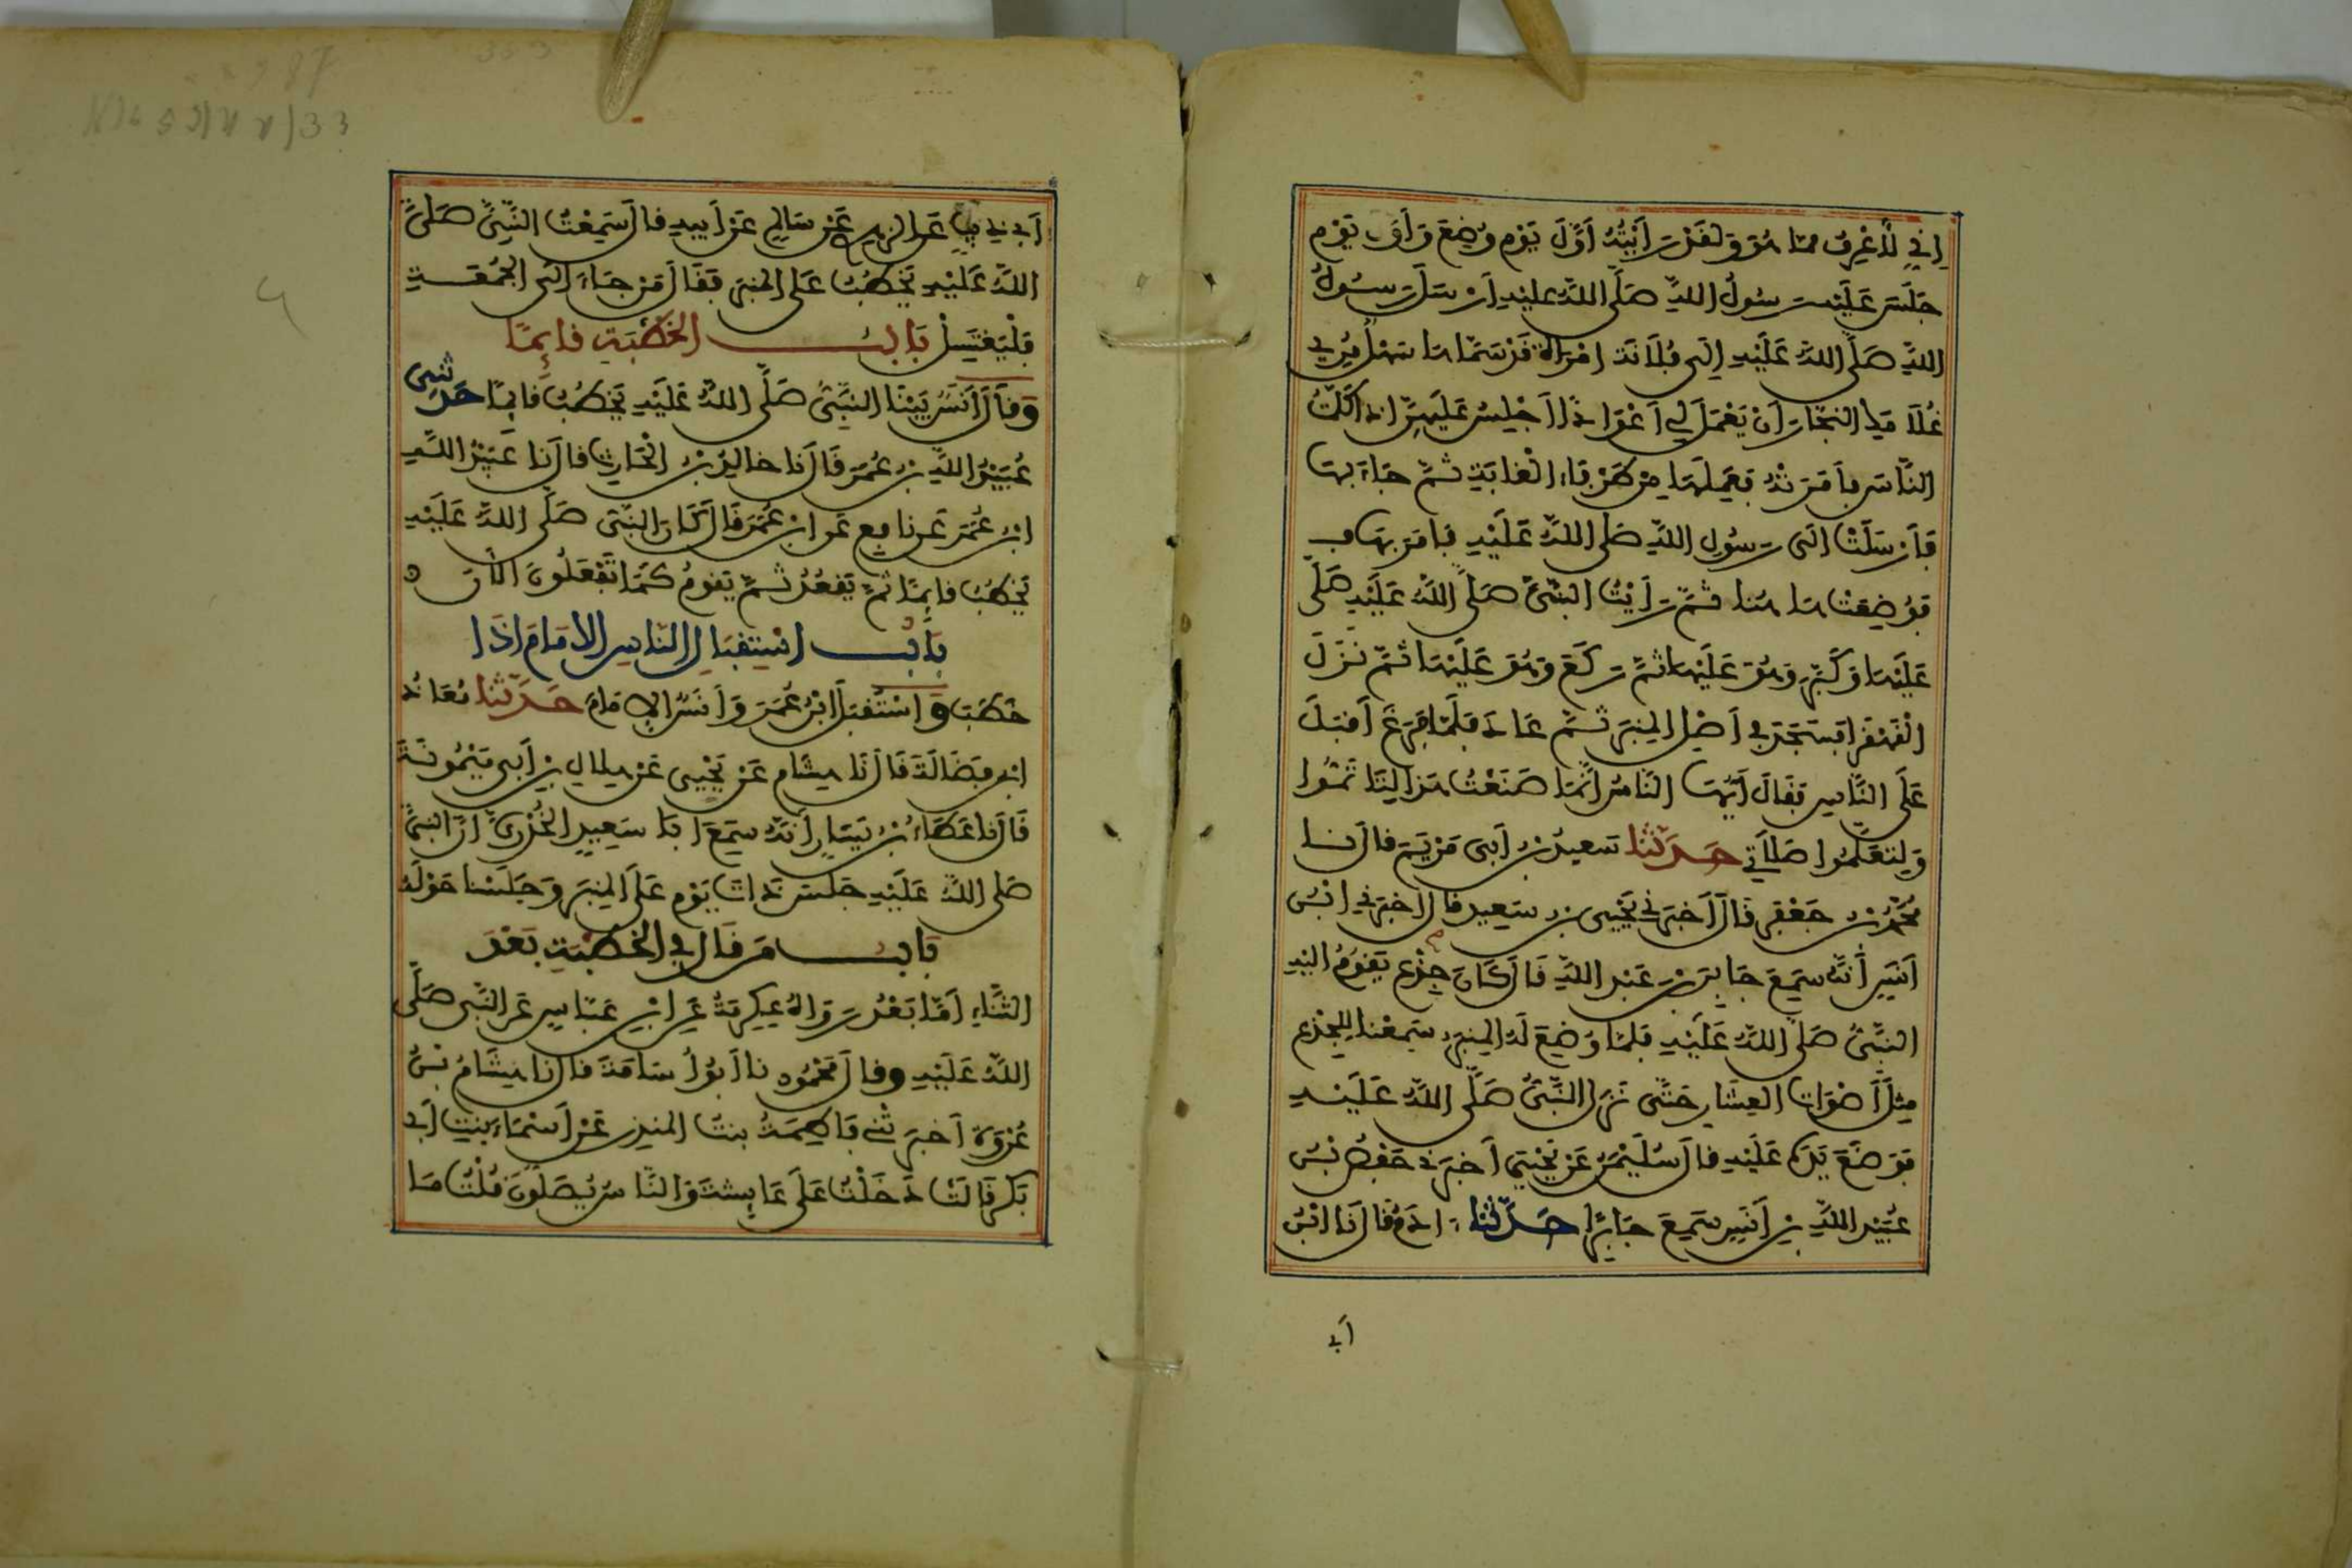 إِنِّي لَأَعْرِفُ مما هُوَ وَلَقَدْ رَأَيْتُهُ أَوَّلَ يَوْم وُضِعَ وَأَوَّلَ يَوْم
جَلَسَ عَلَيْه رَسُولُ اللهِ صَلَّى اللهُ عليهِ أَرْسَلَ رَسُولُ
اللهِ صَلَّى اللهُ عَلَيْهِ إِلَى فُلَانَةَ امْرَأَة قَدْ سَمَّاهَا سَهْل مُرِي
غُلَامَكِ النَّجَّارَ أَنْ يَعْمَلَ لِي أَعْوَادًا أَجْلِسُ عَلَيهِنَّ إِذَا كَلَّمْتُ
النَّاسَ فَأَمَرَتْهُ فَعَمِلَهَا مِنْ طَرْفَاءِ الْغَابَةِ ثُمَّ جَاءَ بِهَا
فَأَرْسَلَتْ إِلَى رَسُولِ اللهِ صَلى اللهُ عَلَيْهِ فَأَمَرَ بِهَا فـ
فَوُضِعَتْ هَاهُنَا ثُمَّ رَأَيْتُ النَّبِيَّ صَلَّى اللهُ عَلَيْهِ صَلَّى
عَلَيْهَا وَكَبَّرَ وَهُوَ عَلَيْهَا ثُمَّ رَكَعَ وَهُوَ عَلَيْهَا ثُمَّ نَزَلَ
الْقَهْقَرَا فَسَجَدَ فِي أَصْلِ المِنبَرِ ثُمَّ عَادَ فَلَمَّا فَرَغَ أَقْبَلَ
عَلَى النَّاسِ فَقَالَ أَيُّهَا النَّاسُ إِنَّمَا صَنَعْتُ هَذَا لِتَأْتَمُّوا
وَلِتَعَلَّمُوا صَلَاتِي حَدَّثَنَا سَعِيدُ بْنُ أَبِي مَرْيَمَ قال نا
مُحَمَّدُ بْنُ جَعْفَرٍ قَالَ أَخْبَرَنِي يَحْيَى بن سَعِيدٍ قال أَخْبَرَنِي ابْنُ
أَنَسٍ أَنَّهُ سَمِعَ جَابِرَ بْنَ عَبْدِ اللهِ قَالَ كَانَ جِذْع يَقُومُ إليْهِ
النَّبِيُّ صَلَّى اللهُ عَلَيْهِ فَلَمَّا وُضِعَ لَهُ المِنبَرُ سَمِعْنَا لِلْجِذْعِ
مِثْلَ أَصْوَاتِ العِشَارِ حَتَّى نَزَلَ النَّبِيُّ صَلَّى اللهُ عَلَيْهِ
فَوَضَعَ يَدَهُ عَلَيْهِ قالَ سُلَيْمَنُ عَنْ يَحْيَى أَخبرَنِي حَفْصُ بْنُ
عُبَيْدِ اللهِ بْنِ أَنَسٍ سَمِعَ جَابِرًا حَدَّثَنَا ءَادَمُ قَالَ نَا ابْنُ
أَبِي
أَبِي ذِيبٍ عَنِ الزهرِي عَنْ سَالِمٍ عَنْ أَبِيهِ قالَ سَمِعْتُ النَّبِيَّ صَلَّى
اللهُ عَلَيْهِ يَخْطُبُ عَلَى المِنبَرِ فَقَالَ مَنْ جَاءَ إِلَى الجُمُعَةِ
فَلْيَغْتَسِلْ بَابُ الخُطْبَةِ قَائِمًا
وَقَالَ أَنَسٌ بَيْنَا النَّبِيُّ صَلَّى اللهُ عَلَيْهِ يَخْطُبُ قَائِمًا حَدَّثَنِي
عُبَيْدُ اللهِ بن عُمَرَ قَالَ نَا خَالِدُ بْنُ الحَارِثِ قَالَ نَا عُبَيْدُ اللهِ
ابْنُ عُمَرَ عَن نافِع عَنِ ابْنِ عُمَرَ قَالَ كَانَ النَّبِي صَلَّى اللهُ عَلَيْهِ
يَخْطُبُ قَائِمًا ثُمَّ يَقْعُدُ ثُمَّ يَقُومُ كَمَا تَفْعَلُونَ الآنَ
بَابُ اسْتِقْبَالِ النَّاسِ الإِمَامَ إِذَا
خَطَبَ وَاسْتَقْبَلَ ابْنُ عُمَرَ وَأَنَسٌ الإِمَامَ حَدَّثَنَا مُعَاذُ
ابْنُ فَضَالَةَ قَالَ نَا هِشَام عَنْ يَحْيَى عَنْ هِلَالِ بْنِ أَبِي مَيْمُونَةَ
قَالَ نَا عَطَاءُ بْنُ يَسَارٍ أَنَّهُ سَمِعَ أَبَا سَعِيدٍ الخُدْرِيَّ أَنَّ النَّبِيَّ
صَلى اللهُ عَلَيْهِ جَلَسَ ذَاتَ يَوْم عَلَى المِنبَرِ وَجَلَسْنَا حَوْلَهُ
بَابُ مَن قَالَ فِي الخُطْبَةِ بَعْدَ
الثَّنَاءِ أَمَّا بَعْدُ رَوَاهُ عِكْرِمَةُ عَنِ ابْنِ عَبَّاسٍ عَنِ النَّبِي صَلَّى
اللهُ عَلَيْهِ وقالَ مَحْمُود نا أَبُو أُسَامَةَ قَالَ نَا هِشَامُ بْنُ
عُرْوَةَ أَخْبَرَتْنِي فَاطِمَةُ بِنْتُ المنذِرِ عَنْ أَسْمَاءَ بِنتِ أَبِي
بَكرٍ قَالَتْ دَخَلْتُ عَلَى عَائِشَةَ وَالنَّاسُ يُصَلُّونَ قُلْتُ مَا